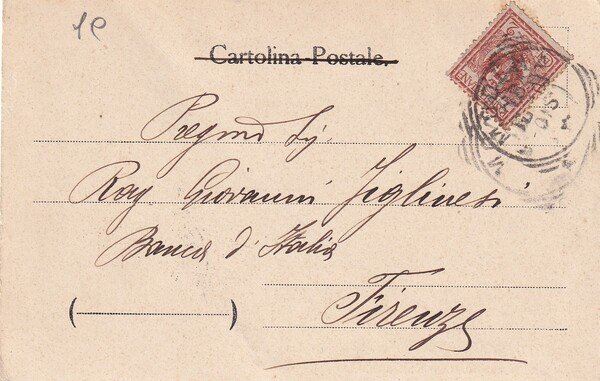 1e
Cartolina Postale.
Pregmo Sig.
Rag. Giovanni Figlinesi
Banca d'Italia
(          )
Firenze